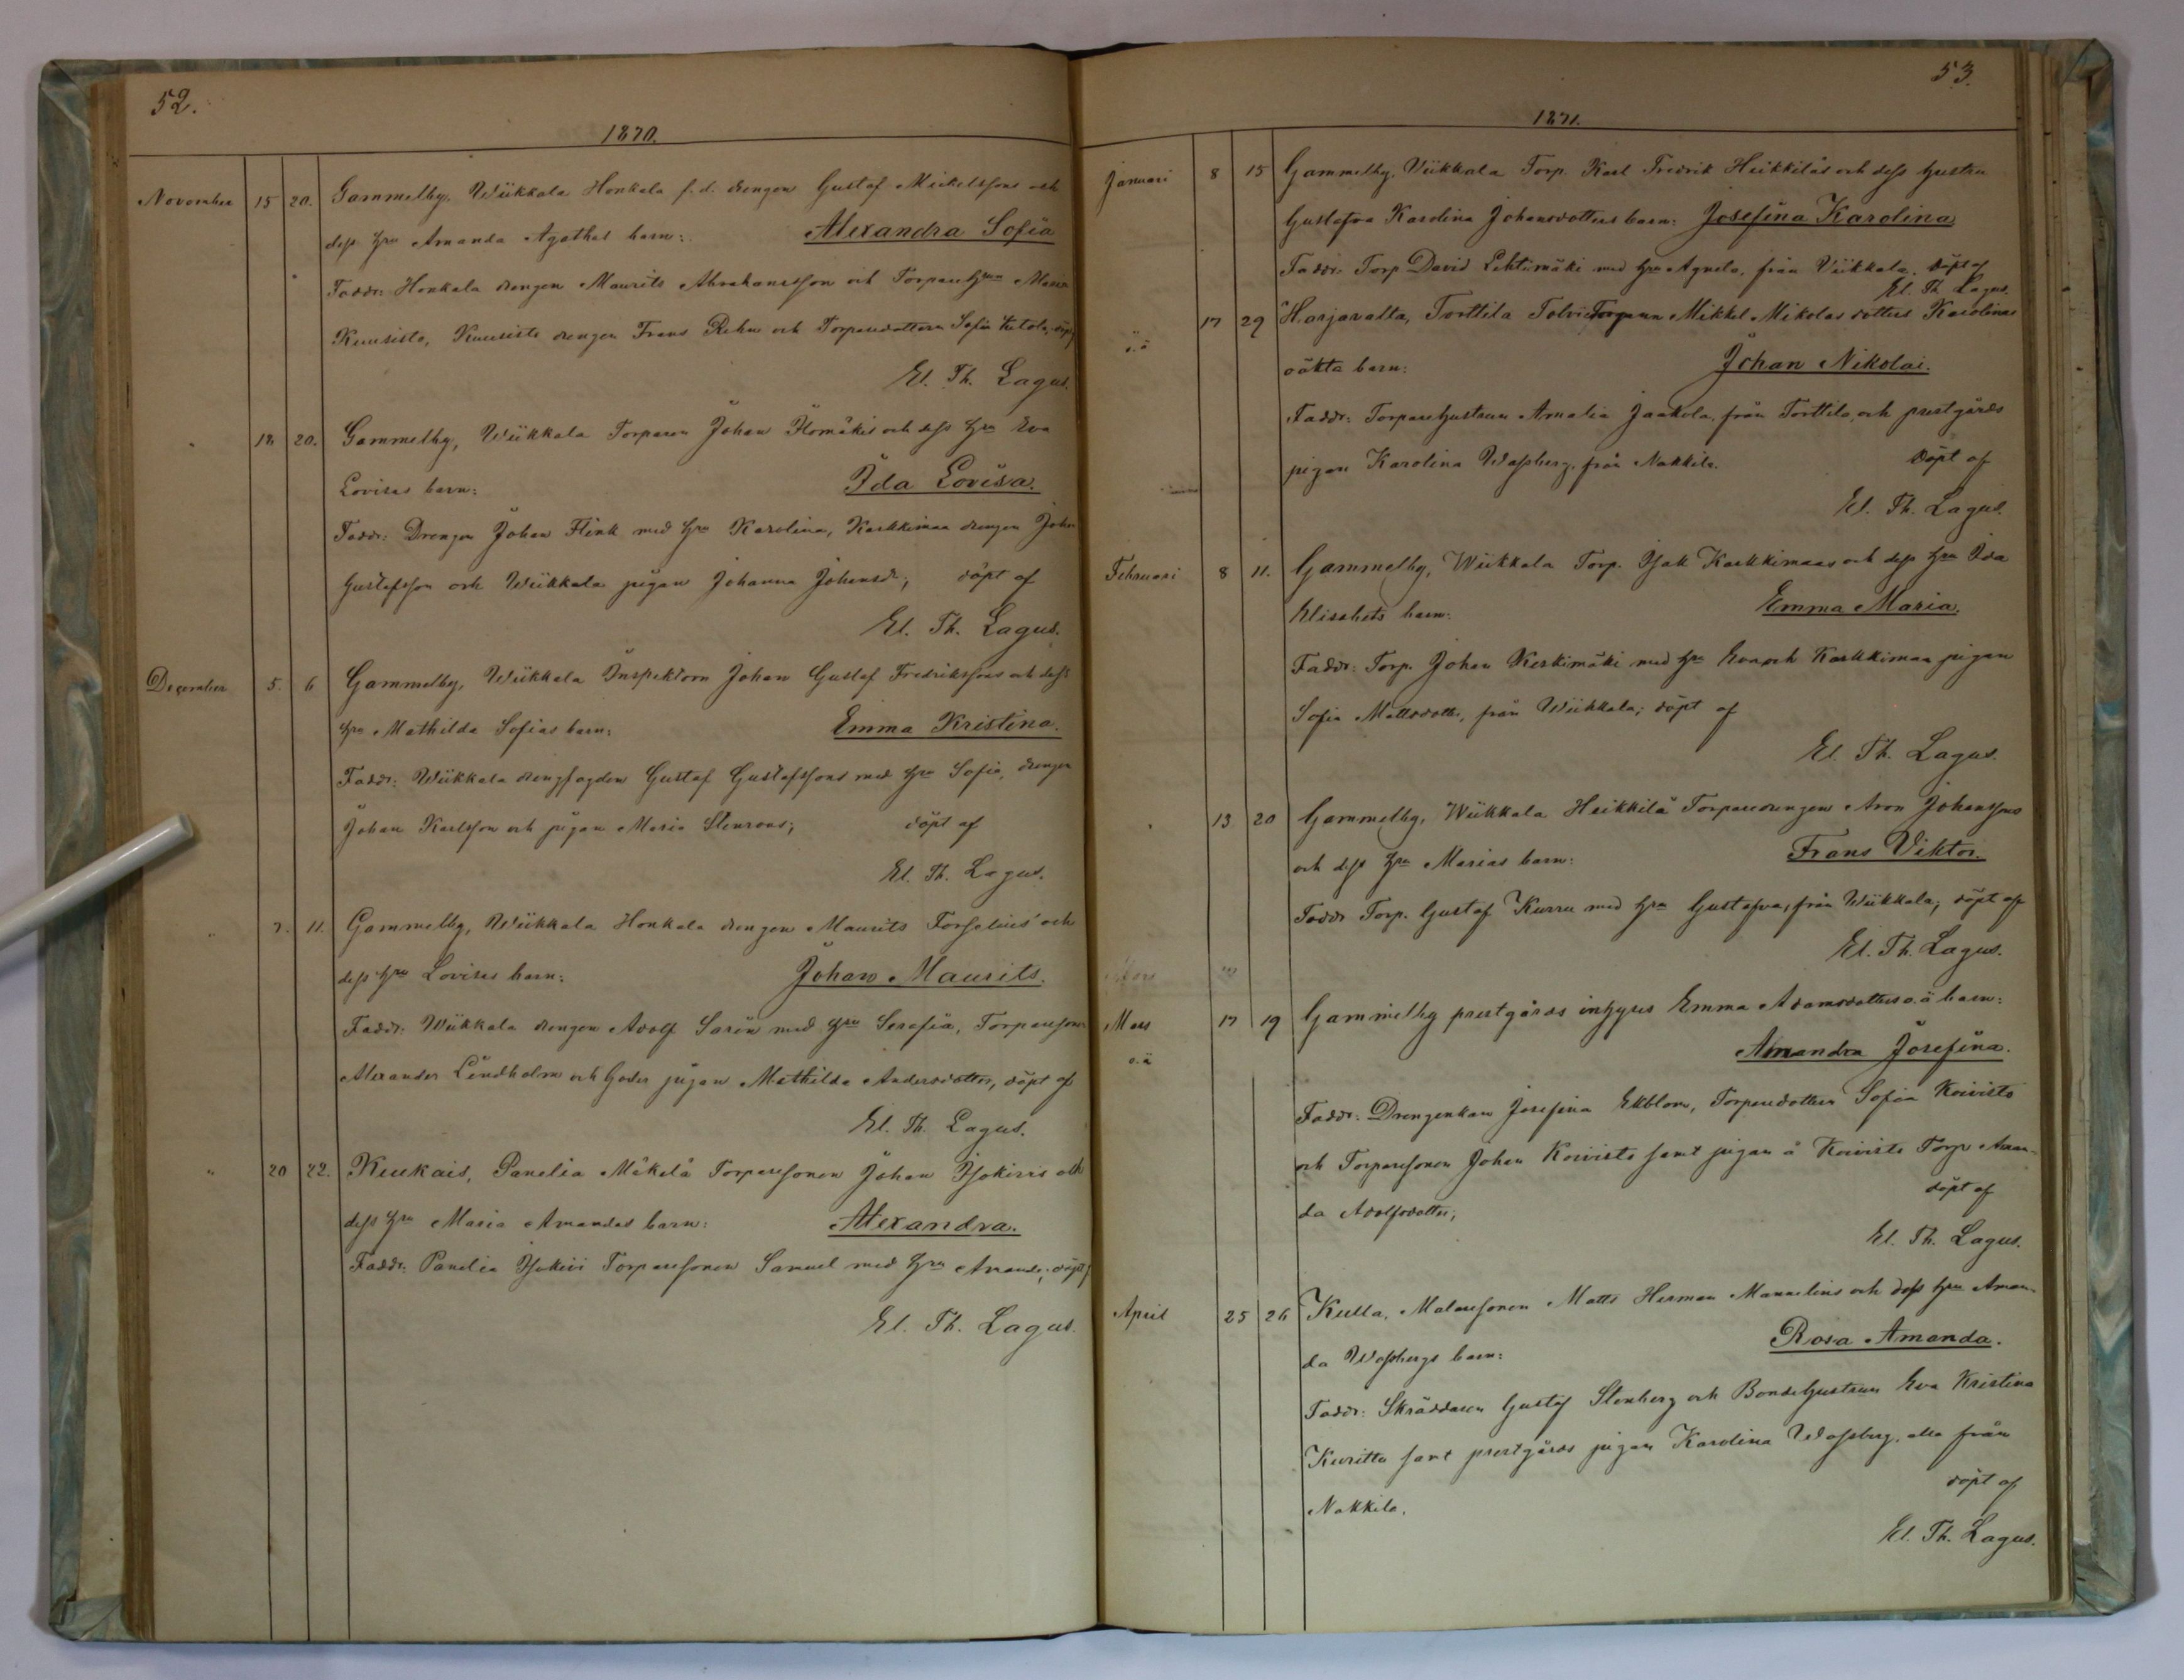 52.
1870.
November 15 20. Gammelby, Wiikkala Honkala f.d. drengen Gustaf Mickelssons och
dess hru Amanda Agathas barn: Alexandra Sofia
Faddr: Honkala drengen Maurits Abrahamsson och Torpare hrun Maria
Kuusisto, Kuusisto drengen Frans Rehn och Torparedottern Sofia
El. Th. Lagus.
" 18 20. Gammelby, Wiikkala Torparen Johan Ilomäkis och dess hru Eva
Lovisas barn: Ida Lovisa.
Faddr: Drengen Johan Flink med hru Karolina, Karkkimaa drengen Johan
Gustafsson och Wiikkala pigan Johanna Johansdr; döpt af
El. Th. Lagus.
December 5. 6 Gammelby, Wiikkala Inspektorn Johan Gustaf Fredrikssons och dess
hru Mathilda Sofias barn: Emma Kristina.
Faddr: Wiikkala drengfogden Gustaf Gustafssons med hru Sofia, drengen
Johan Karlsson och pigan Maria Stenroos; döpt af
El. Th. Lagus.
" 7. 11. Gammelby, Wiikkala Honkala drengen Maurits Forselius' och
dess hru Lovisas barn: Johan Maurits.
Faddr: Wiikkala drengen Adolf Sarén med hru Serafia, Torparesonen
Alexander Lindholm och Goder pigan Mathilda Andersdotter, döpt af
El. Th. Lagus.
" 20 22. Kiukais, Panelia Mäkelä Torparesonen Johan Isokivis och
dess hru Maria Amandas barn: Alexandra.
Faddr: Panelia Isokivi Torparesonen Samuel med hru Amanda; döpt af
El. Th. Lagus.
53.
1871.
Januari 8 15 Gammelby, Viikkala Torp. Karl Fredrik Heikkiläs och dess hustru
Gustafva Karolina Johansdotters barn: Josefina Karolina
Faddr: Torp David Lehtimäki med hru Agneta, från Viikkala. döpt af
El. Th. Lagus.
o.ä 17 29 Harjavalta, Torttila Tolvi Mikkel Mikolas dotters Karolinas
oäkta barn: Johan Nikolai.
Faddr: Torpare hustrun Amalia Jaakola, från Torttila, och prestgårds
pigan Karolina Wassberg, från Nakkila. döpt af
El. Th. Lagus.
Februari 8 11. Gammelby, Wiikkala Torp. Isak Karkkimaas och dess hru Ida
Elisabets barn: Emma Maria.
Faddr: Torp. Johan Keskimäki med hru Eva och Karkkimaa pigan
Sofia Mattsdotter, från Wiikkala; döpt af
El. Th. Lagus.
" 13 20 Gammelby, Wiikkala Heikkilä Torparedrengen Aron Johanssons
och dess hru Marias barn: Frans Viktor.
Faddr Torp. Gustaf Kurru med hru Gustafva, från Wiikkala; döpt af
El. Th. Lagus.
Mars 17 19 Gammelby prestgårds inhyses Emma Adamsdotters o.ä barn:
o.ä Amanda Josefina.
Faddr: Drengenkan Josefina Ekblom, Torparedottern Sofia Koivisto
och Torparesonen Johan Koivisto samt pigan å Koivisto Torp Aman-
da Adolfsdotter; döpt af
El. Th. Lagus.
April 25 26 Kulla, Malaresonen Matts Herman Mannelins och dess hru Aman-
da Wassbergs barn: Rosa Amanda.
Faddr: Skräddaren Gustaf Stenberg och Bondehustrun Eva Kristina
Kuritta samt prestgårds pigan Karolina Wassberg, alla från
Nakkila. döpt af
El. Th. Lagus.